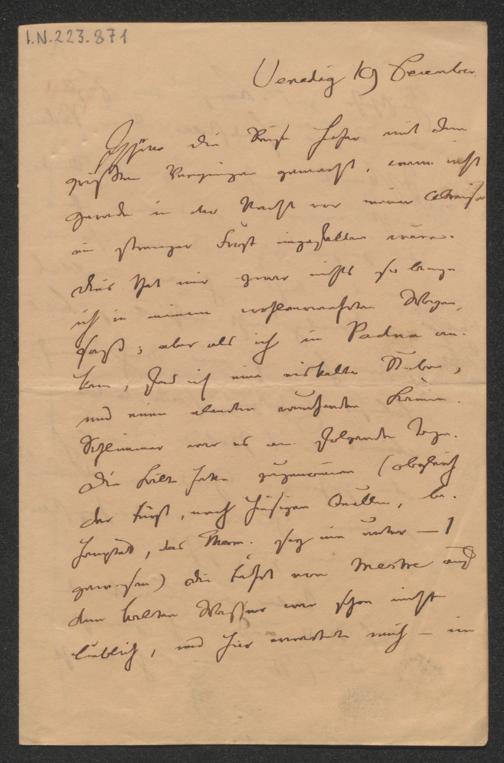 I.N. 223.871
Venedig 19 Dezember
die Reise mit dem
größten Vergnügen gemacht, wenn nicht
gerade in der Nacht vor meiner Abreise
ein strenger Frost eingefallen wäre.
Dies hat mir zwar nichts so lange
ich in meinem wohlverwahrten Wagen
saß; aber als ich in Padua an-
kam, fand ich eine eiskalte Stube,
und einen elenden rauchenden Kamin.
Schlimmer war es am folgenden Tage.
Die Kälte hatte zugenommen (obgleich
der Fürst, nach hiesigen Quellen, be-
hauptet, das Therm. sey nie unter – 1
gewesen) die Fahrt von Mestre auf
dem kalten Wasser war schon nicht
lieblich, und hier erwartete mich – ein